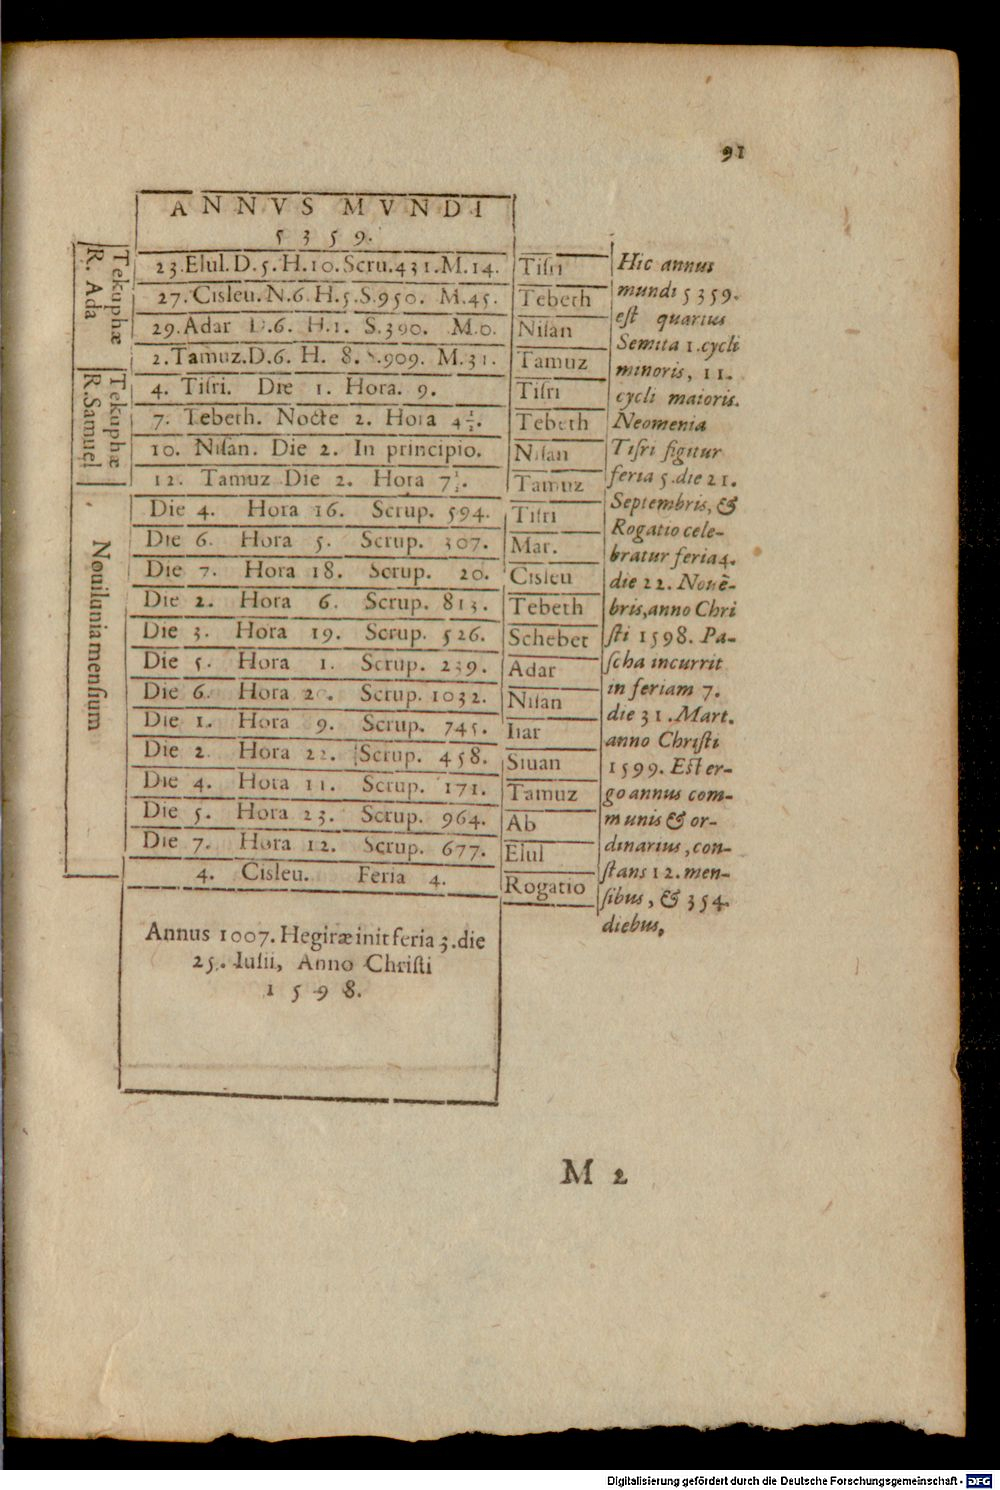 91
ANNVS MVNDI
5359.
Tekuphæ
R. Ada
23.Elul.D.5.H.10.Scru.431.M.14. Tiſri
27.Cisleu.N.6.H.5.S.950. M.45. Tebeth
29.Adar D.6. H.1. S.390. M.0. Niſan
2.Tamuz.D.6. H. 8. S.909. M.31. Tamuz
Tekuphæ
R.Samuel
4. Tiſri. Die 1. Hora. 9. Tiſri
7. Tebeth. Nocte 2. Hora 4½. Tebeth
10. Niſan. Die 2. In principio. Niſan
12. Tamuz Die 2. Hora 7½. Tamuz
Nouiluniamenſium
Die 4. Hora 16. Scrup. 594. Tiſri
Die 6. Hora 5. Scrup. 307. Mar.
Die 7. Hora 18. Scrup. 20. Cisleu
Die 2. Hora 6. Scrup. 813. Tebeth
Die 3. Hora 19. Scrup. 526. Schebet
Die 5. Hora 1. Scrup. 239. Adar
Die 6. Hora 20. Scrup. 1032. Niſan
Die 1. Hora 9. Scrup. 745. Iiar
Die 2. Hora 22. Scrup. 458. Siuan
Die 4. Hora 11. Scrup. 171. Tamuz
Die 5. Hora 23. Scrup. 964. Ab
Die 7. Hora 12. Scrup. 677. Elul
4. Cisleu. Feria 4. Rogatio
Annus 1007. Hegiræ init feria 3.die
25. Iulii, Anno Chriſti
1598.
Hic annus
mundi 5359.
eſt quartus
Semita 1.cycli
minoris, 11.
cycli maioris.
Neomenia
Tiſri figitur
feria 5.die 21.
Septembris, &
Rogatio cele-
bratur feria 4.
die 22. Nouē-
bris,anno Chri
ſti 1598. Pa-
ſcha incurrit
in feriam 7.
die 31.Mart.
anno Chriſti
1599. Eſt er-
go annus com-
munis & or-
dinarius, con-
ſtans 12.men-
ſibus, & 354
diebus,
M 2
Digitalisierung gefördert durch die Deutsche Forschungsgemeinschaft - DFG